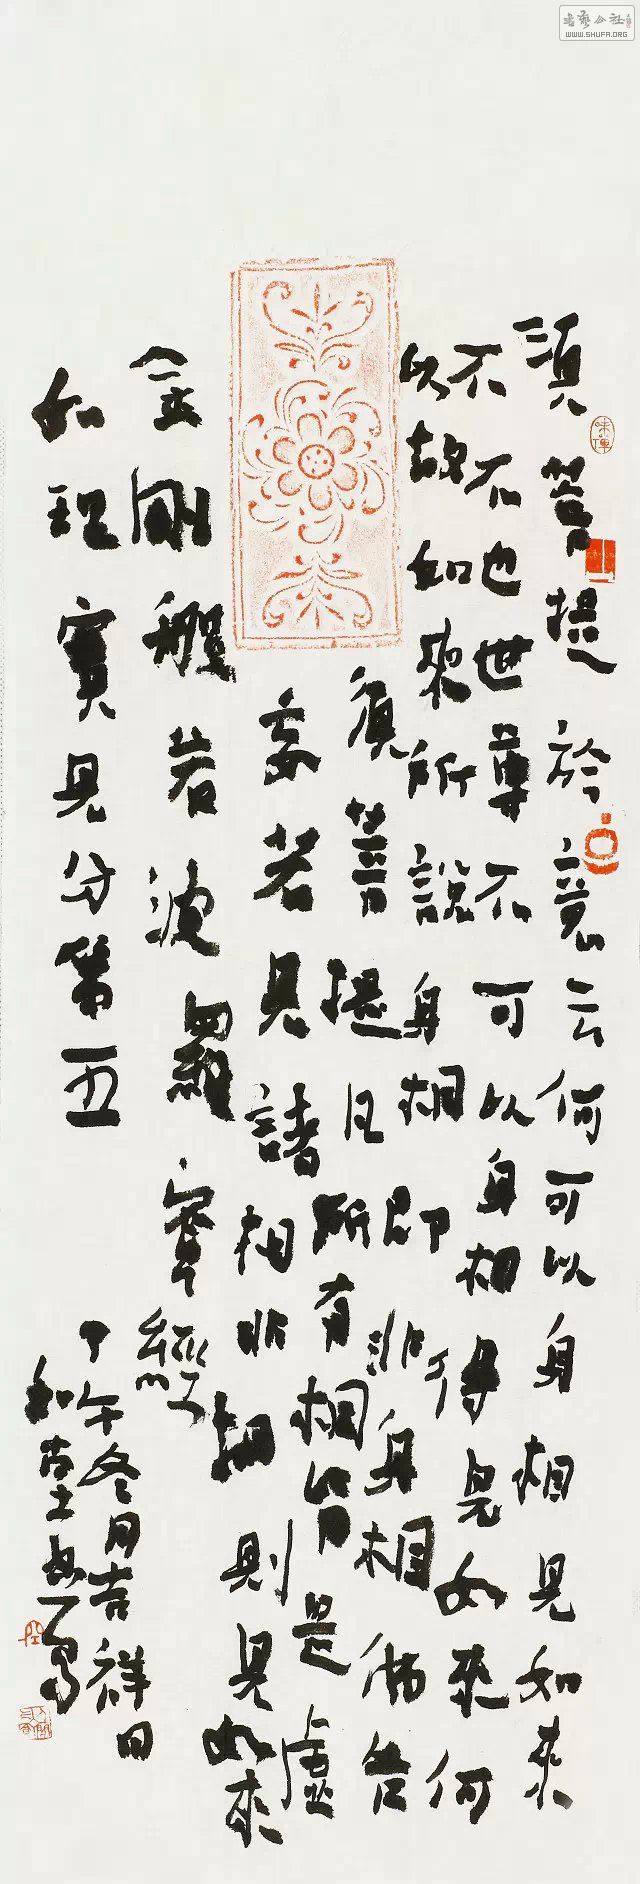 須菩提於意云何可以身相見如來
不不也世尊不可以身相得見如來何
以故如來所說身相即非身相佛告
須菩提凡所有相皆是虛
妄若見諸相非相則見如來
金剛般若波羅蜜經
如理實見分第五
午冬月吉祥日
書藝公社
WWW.SHUFA.ORG